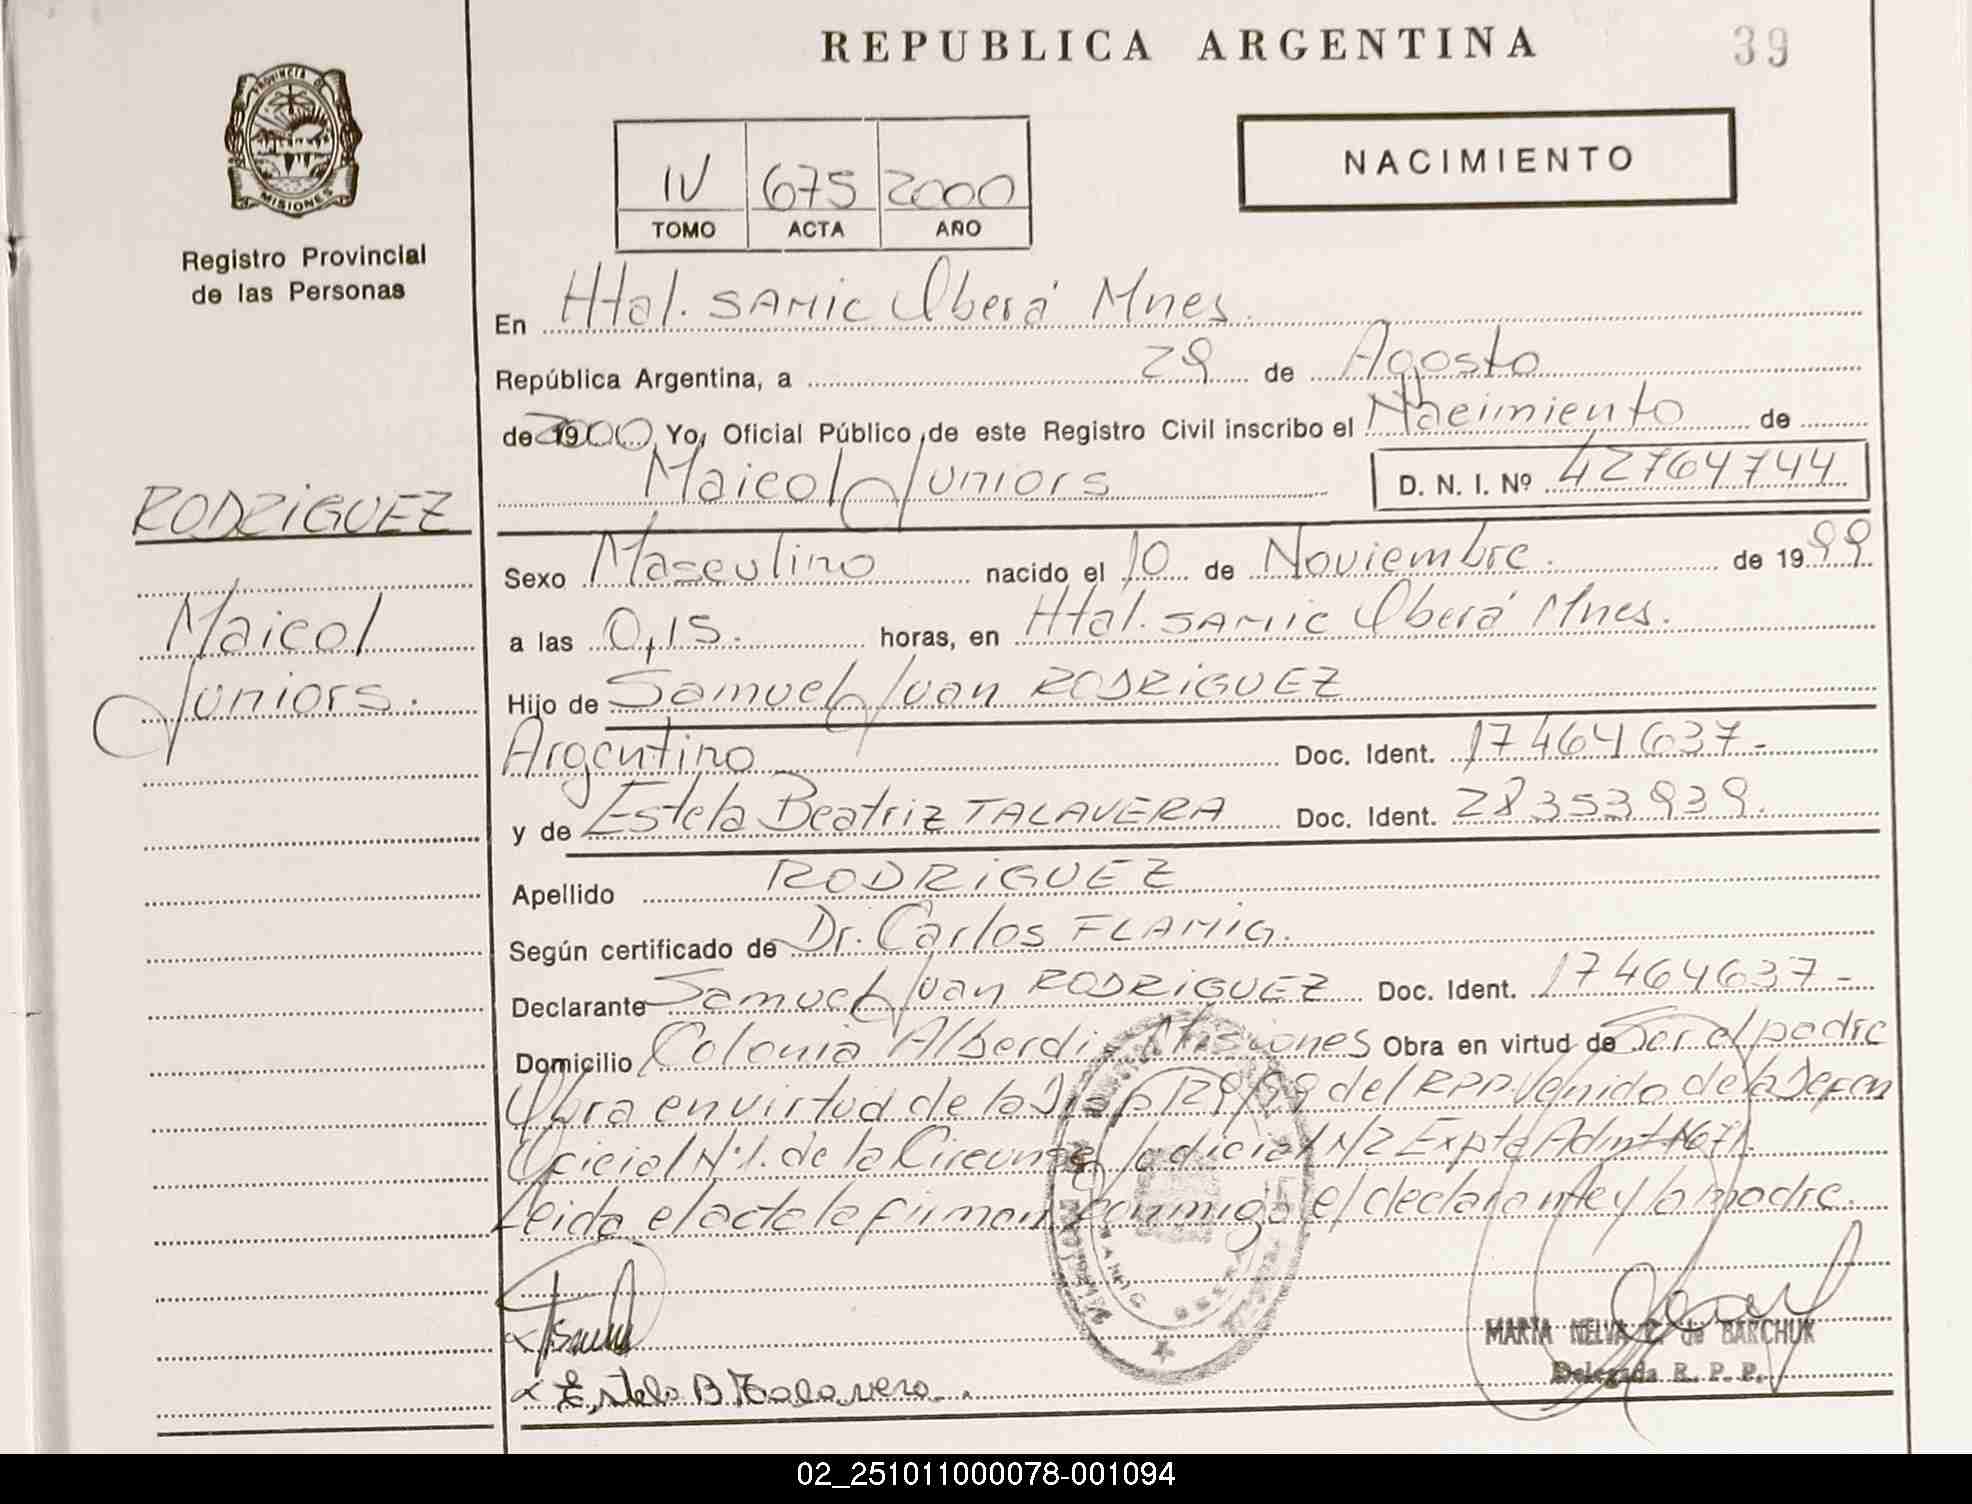 REPUBLICA ARGENTINA
39
PROVINCIA DE
MISIONES
Registro Provincial
de las Personas
IV 675 2000
TOMO ACTA AÑO
NACIMIENTO
En Htal. SAMIC Oberá Mnes.
República Argentina, a 29 de Agosto
de 2000 Yo, Oficial Público de este Registro Civil inscribo el Nacimiento de
Maicol Juniors D. N. I. Nº 42764744
RODRIGUEZ
Maicol
Juniors.
Sexo Masculino nacido el 10 de Noviembre. de 1999
a las 0,15. horas, en Htal. SAMIC Oberá Mnes.
Hijo de Samuel Juan RODRIGUEZ
Argentino Doc. Ident. 17464637-
y de Estela Beatriz TALAVERA Doc. Ident. 28353939.
Apellido RODRIGUEZ
Según certificado de Dr. Carlos FLAMIG.
Declarante Samuel Juan RODRIGUEZ Doc. Ident. 17464637-
Domicilio Colonia Alberdi Misiones Obra en virtud de Ser el padre
Obra en virtud de la Disp 129/99 del RPP. Venido de la Defen
Oficial N:1. de la Circunsc Judicial N/2 Expte Admt
Leida el acta la firman conmigo el declarante y la madre.
x
x Estela B Talavera.
MARTA NELVA de BARCHUK
Delegada R. P. P.
02_251011000078-001094